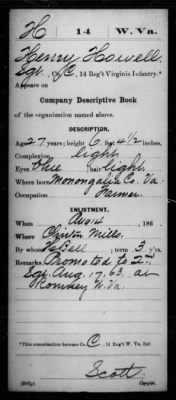 H 14 W. Va.
Henry Howell
Sgt., Co. C, 14 Reg't Virginia Infantry.*
Appears on
Company Descriptive Book
of the organization named above.
DESCRIPTION.
Age 27 years; height 6 feet 4 1/2 inches.
Complexion light
Eyes Blue; hair light.
Where born Monongalia Co. Va.
Occupation Farmer
ENLISTMENT.
When Aug 14, 186
Where Clinton Mills.
By whom ; term 3 y'rs.
Remarks Promoted to 2nd
Sgt. Aug. 17, 63 at
Romney W. Va.
*This organization became Co. C, 14 Reg't W. Va. Inf.
Scott
Copyist.